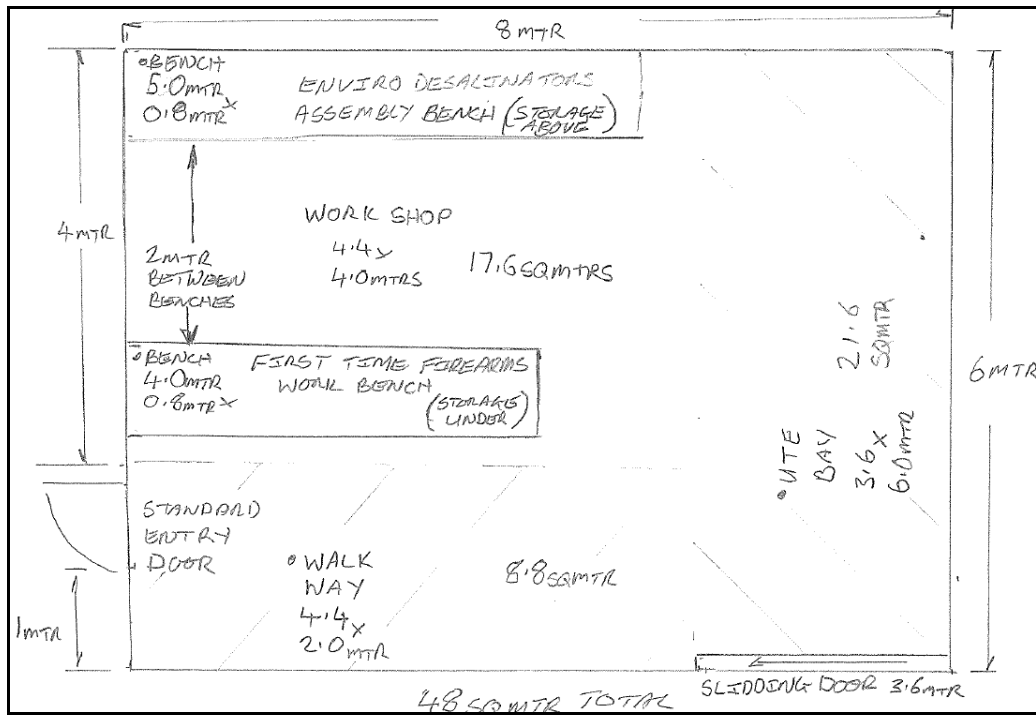 8 MTR
•BENCH
5.0MTR X
0.8MTR
ENVIRO DESALINATORS
ASSEMBLY BENCH (STORAGE
ABOVE)
4MTR
2MTR
BETWEEN
BENCHES
WORK SHOP
4.4X
4.0MTRS
17.6SQMTRS
•BENCH
4.0MTR
0.8MTR X
FIRST TIME FIREARMS
WORK BENCH
(STORAGE
UNDER)
•UTE
BAY
3.6X
6.0MTR
21.6
SQMTR
6MTR
STANDARD
ENTRY
DOOR
•WALK
WAY
4.4X
2.0MTR
8.8SQMTR
1MTR
SLIDDING DOOR 3.6MTR
48 SQMTR TOTAL